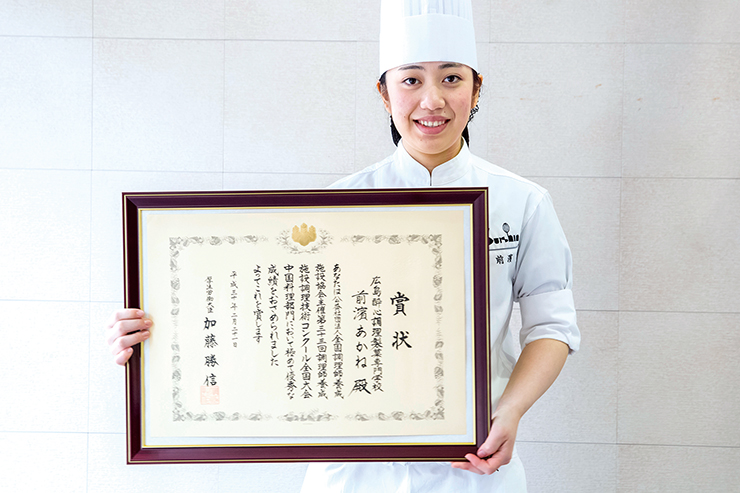 賞状
広島酔心調理製菓専門学校
前濱あかね 殿
あなたは(公益社団法人)全国調理師養成
施設協会主催第三十三回調理師養成
施設調理技術コンクール全国大会
中国料理部門において極めて優秀な
成績をおさめられました
よってこれを賞します
平成三十年二月二十一日
厚生労働大臣 加藤勝信
前濱